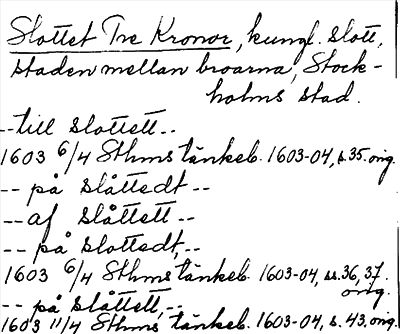 Slottet Tre Kronor, kungl. slott,
staden mellan broarna, Stock-
holms stad.
--till slottett--
1603 6/4 Sthms tänkeb. 1603-04, s.35. orig.
--på slåttedt--
--af slåttett--
--på slottedt,--
1603 6/4 Sthms tänkeb. 1603-04, ss.36,37.
orig.
--på slåttett,--
1603 11/4 Sthms tänkeb. 1603-04, s.43. orig.